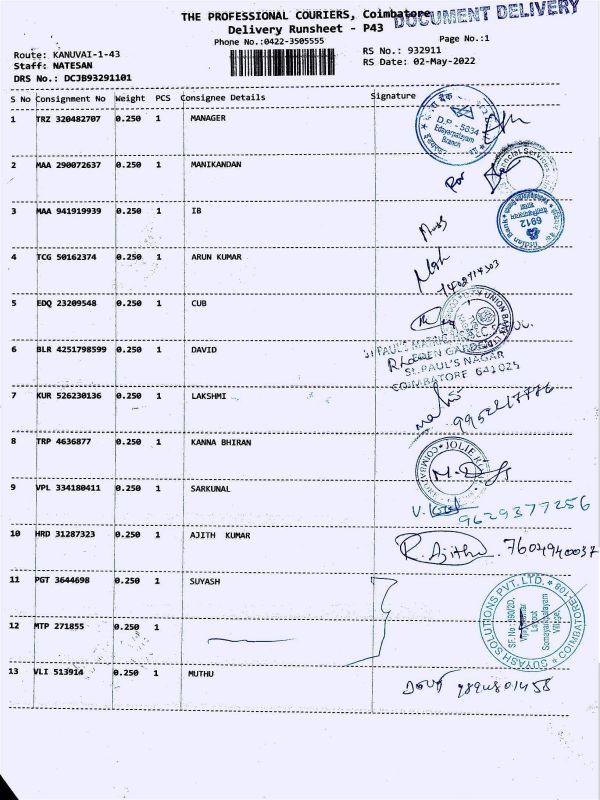 THE PROFESSIONAL COURIERS, Coimbatore
DOCUMENT DELIVERY
Delivery Runsheet - P43
Phone No.:0422-3505555
Page No.:1
Route: KANUVAI-1-43
RS No.: 932911
Staff: NATESAN
RS Date: 02-May-2022
DRS No.: DCJB93291101
S No Consignment No Weight PCS Consignee Details Signature
1 TRZ 320482707 0.250 1 MANAGER
D.P - 5034
Edayarpalayam
Branch
2 MAA 290072637 0.250 1 MANIKANDAN
Financial Services
3 MAA 941919939 0.250 1 IB
Indian Bank
6912
4 TCG 50162374 0.250 1 ARUN KUMAR
5 EDQ 23209548 0.250 1 CUB
UNION BANK
6 BLR 4251798599 0.250 1 DAVID
EDEN GARDEN
ST.PAUL'S NAGAR
COIMBATORE 641025
7 KUR 526230136 0.250 1 LAKSHMI
8 TRP 4636877 0.250 1 KANNA BHIRAN
9 VPL 334180411 0.250 1 SARKUNAL
9629377256
10 HRD 31287323 0.250 1 AJITH KUMAR
R. Ajithu. 7604940037
11 PGT 3644698 0.250 1 SUYASH
SUYASH SOLUTIONS PVT. LTD. * COIMBATORE 108
12 MTP 271855 0.250 1
13 VLI 513914 0.250 1 MUTHU
9894801458